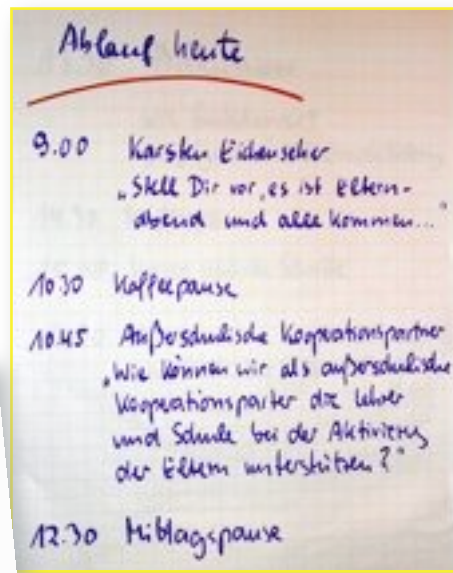 Ablauf heute
9.00 Karsten
„Stell Dir vor, es ist Eltern-
abend und alle kommen..."
10 30 Kaffeepause
10.45 Außerschulische Kooperationspartner
„Wie können wir als außerschulische
Kooperationsparter die Lehrer
und Schule bei der Aktivierung
der Eltern unterstützen?"
12.30 Mittagspause